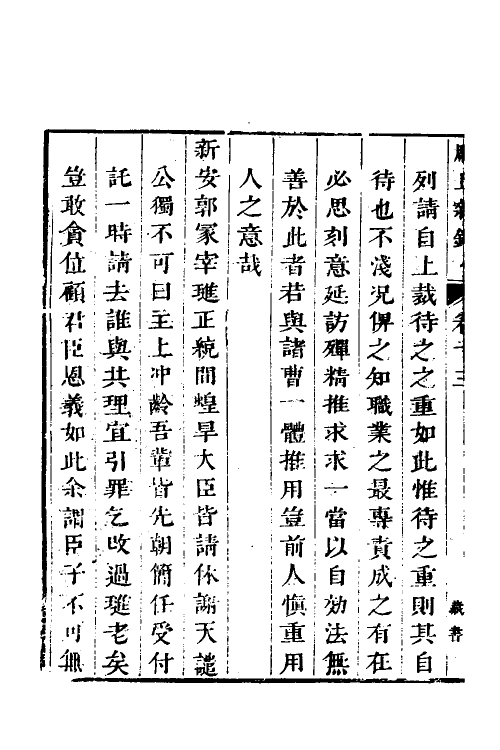 列請自上裁待之之重如此惟待之重則其自
待也不淺况俾之知職業之最專責成之有在
必思刻意延訪殫精推求求一當以自効法無
善於此者若與諸曹一體推用豈前人愼重用
人之意哉
新安郭冢宰璡正統間蝗旱大臣皆請休謝天譴
公獨不可曰主上冲齡吾輩皆先朝簡任受付
託一時請去誰與共理宜引罪乞改過璡老矣
豈敢貪位顧君臣恩義如此余謂臣子不可無
卷十三